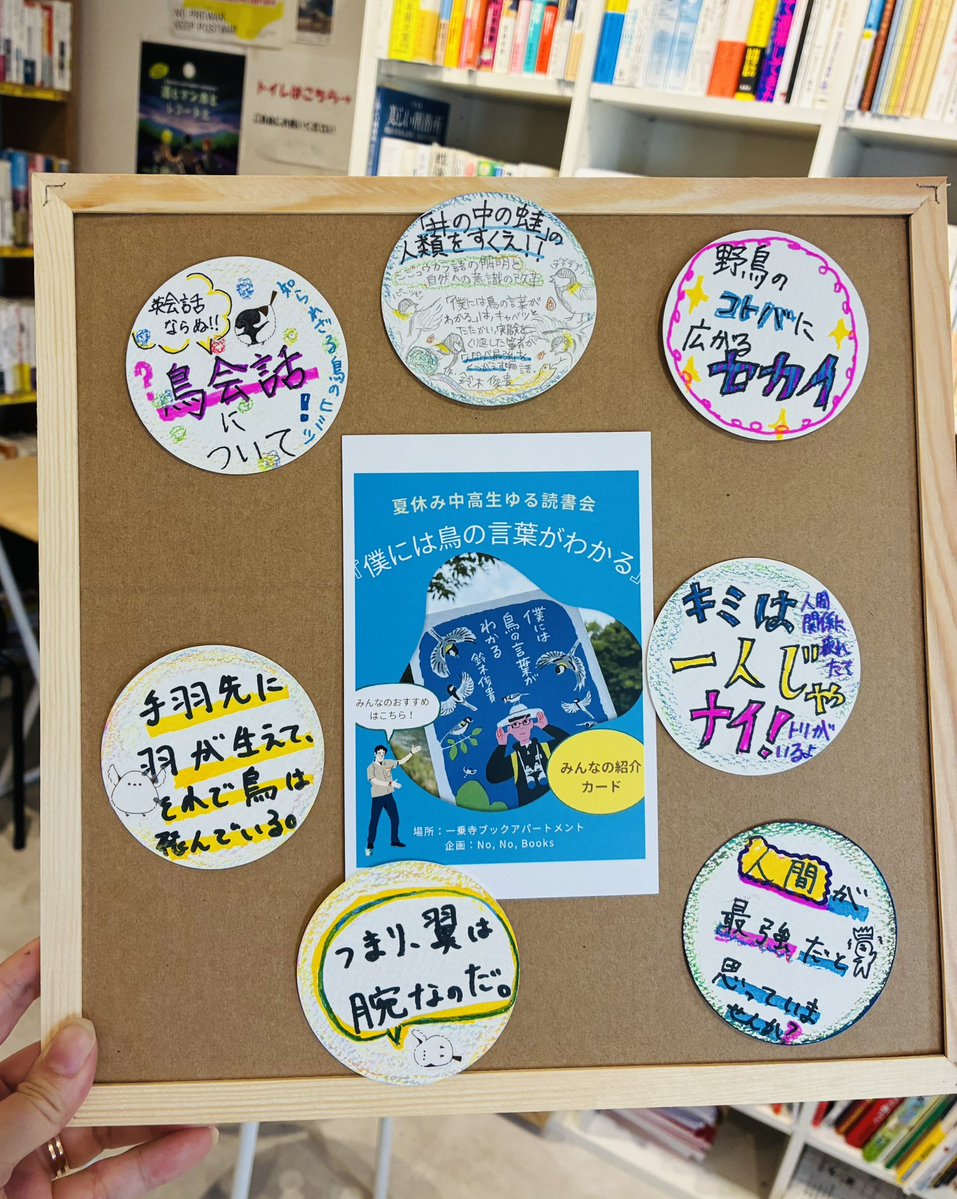 NO PREWAR
KEEP POSTWAR
トイレはこちら→
「井の中の蛙」の
人類をすくえ!!
シジュウカラ語の解明と
自然への意識の改革
「僕には鳥の言葉が
わかる」は、キャベツと
たたかい実験を
くり返した筆者が
鈴木俊貴
英会話
ならぬ!!
鳥会話
に
ついて
?
知られざる鳥のヒミツ!
野鳥の
コトバに
広がる
セカイ
夏休み中高生ゆる読書会
『僕には鳥の言葉がわかる』
僕には
鳥の言葉が
わかる
鈴木俊貴
みんなのおすすめ
はこちら!
みんなの紹介
カード
場所:一乗寺ブックアパートメント
企画:No, No, Books
キミは
一人じゃ
ナイ!
人間
関係に
疲れ
たって
トリが
いるよ
手羽先に
羽が生えて、
それで鳥は
飛んでいる。
つまり、翼は
腕なのだ。
人間が
最強だと
思っていま
せんか?